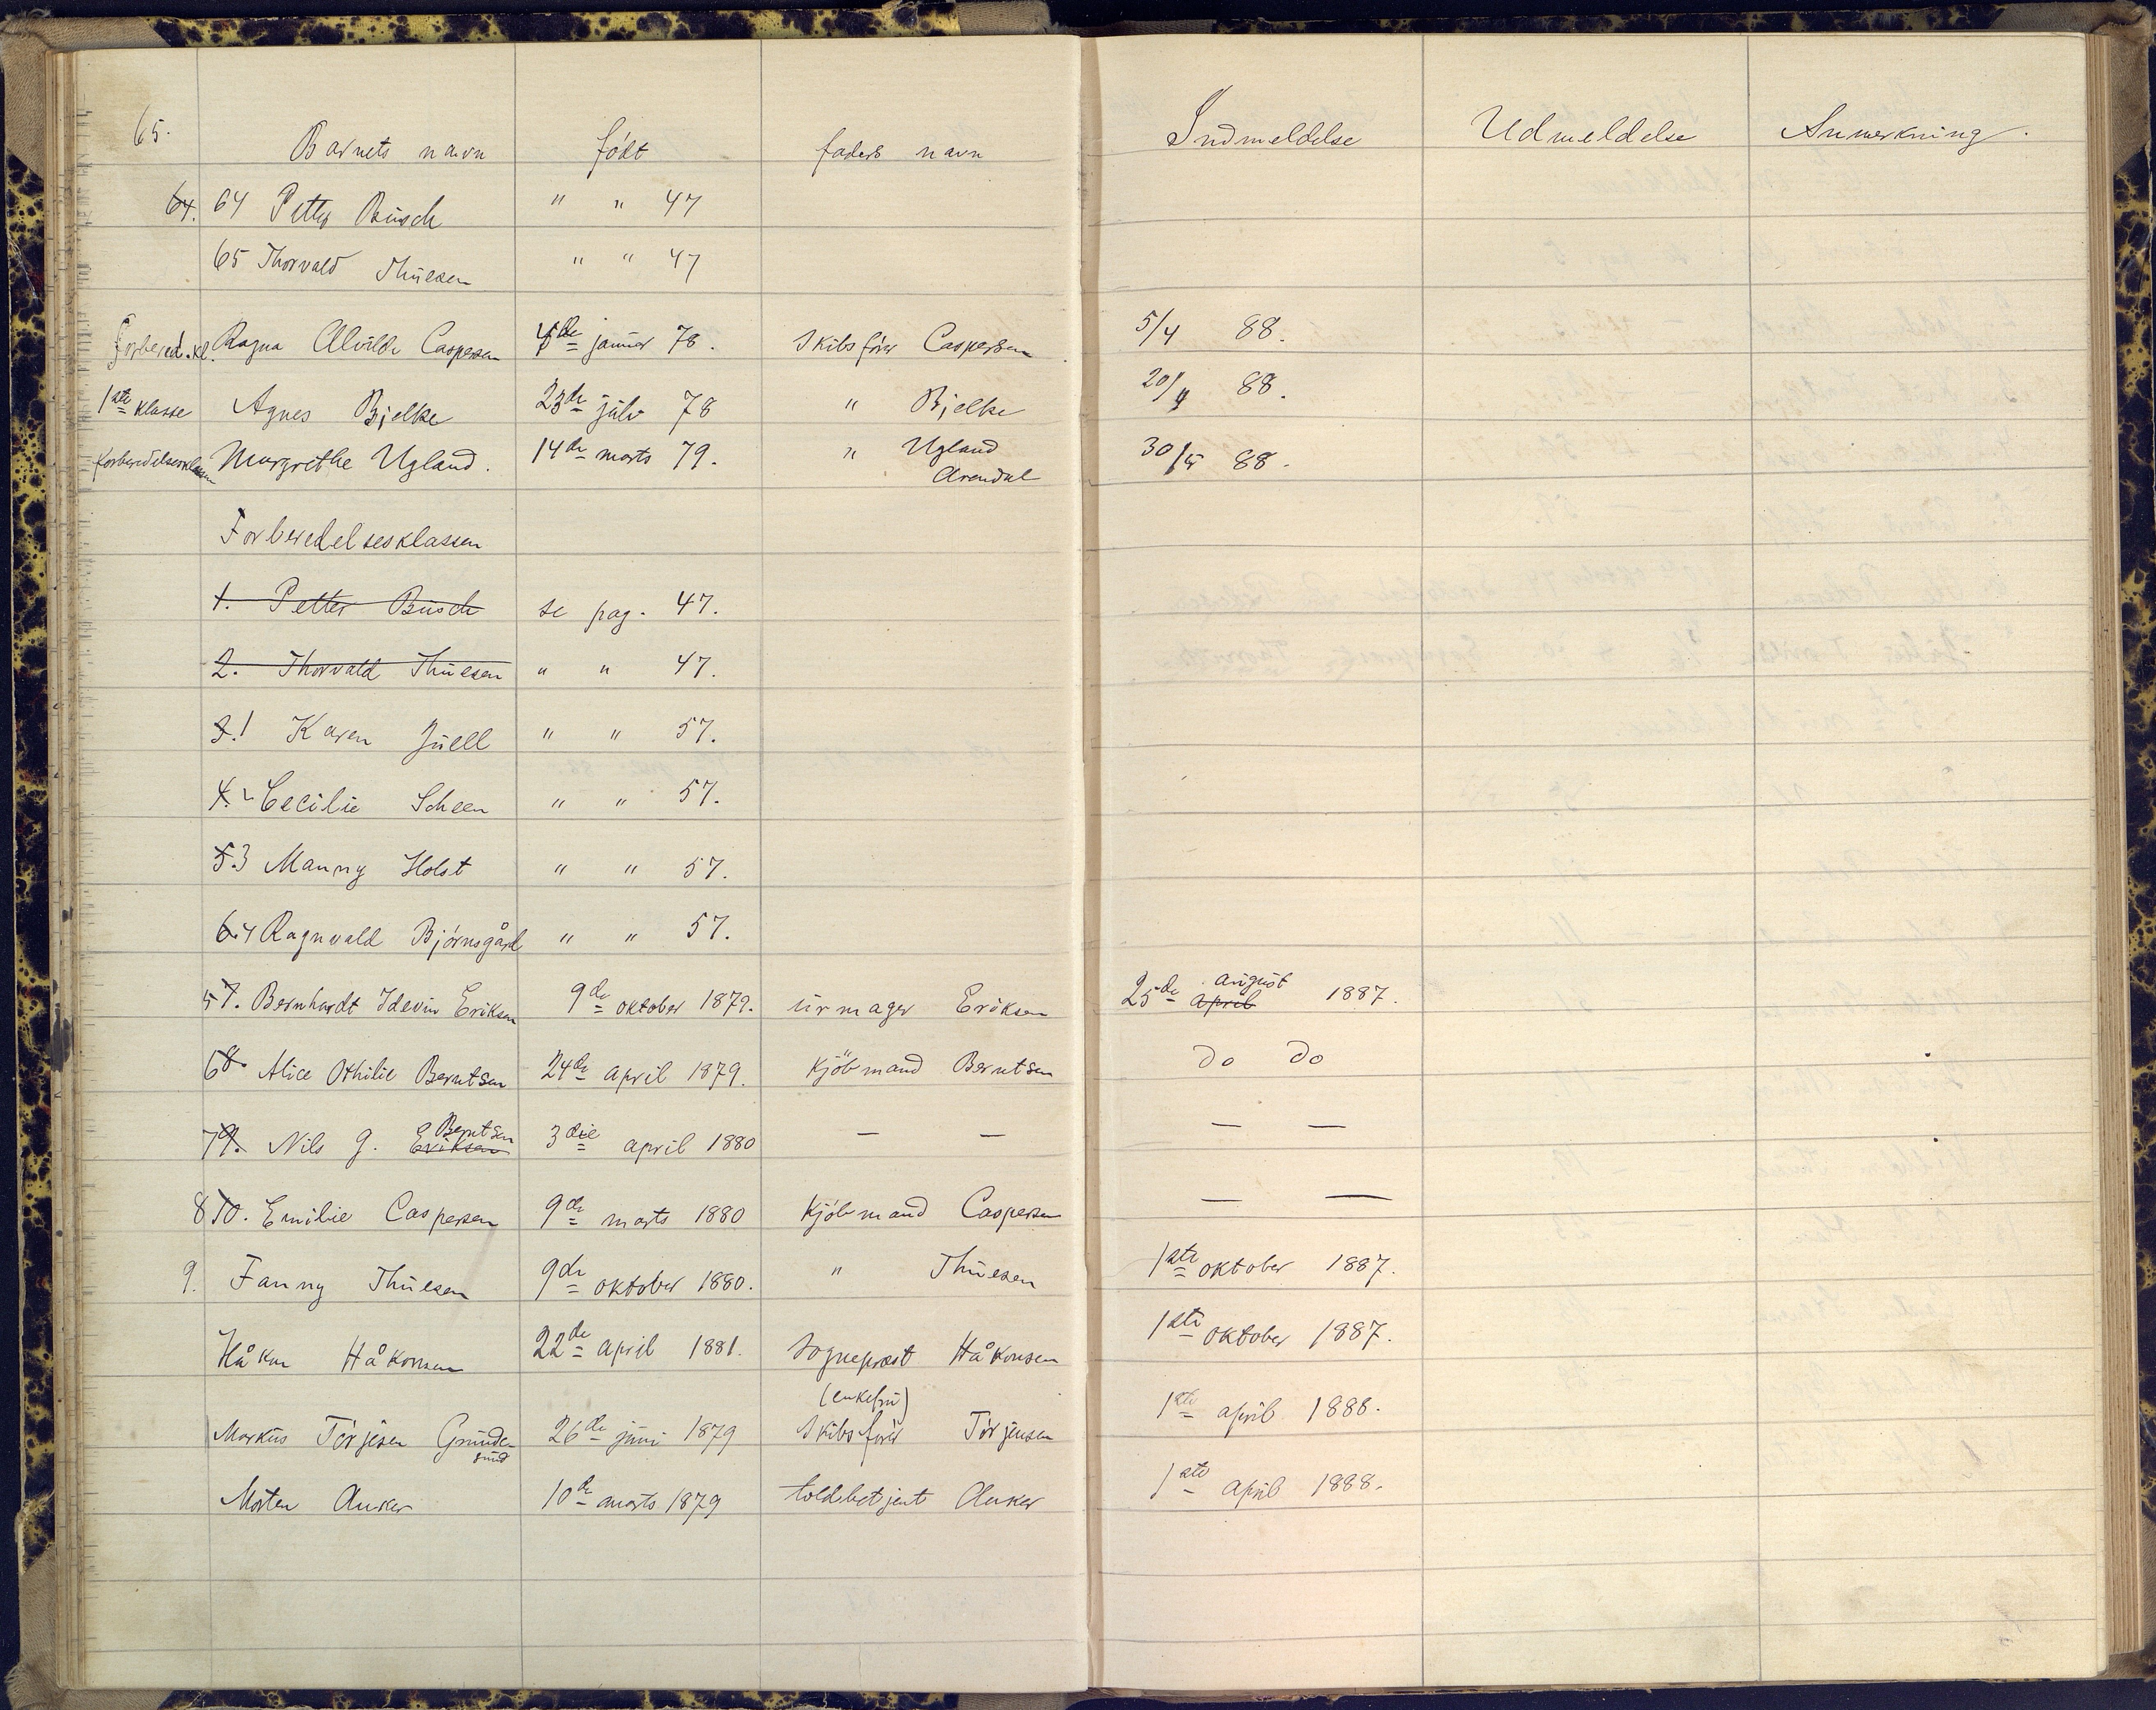 65.
Barnets navn født faders navn Indmeldelse Udmeldelse Anmerkning.
64. 64 Petter Busch " " 47
65 Thorvald Thuesen " " 47
Forbered.kl. Ragna Alvilde Caspersen 4de januar 78. Skibsfører Caspersen 5/4 88.
1ste klasse Agnes Bjelke 23de juli 78 " Bjelke 20/4 88.
Forberedelsesklassen Margrethe Ugland. 14de marts 79. " Ugland 30/5 88.
Arendal
Forberedelsesklassen
1. Petter Busch se pag. 47.
2. Thorvald Thuesen " " 47.
3. 1 Karen Juell " " 57.
4. 2 Cecilie Scheen " " 57.
5. 3 Manny Holst " " 57.
6. 4 Ragnvald Bjørnsgård " " 57.
august
5 7. Bernhardt Idevin Eriksen 9de oktober 1879. urmager Eriksen 25de april 1887.
6 8. Alice Othilie Berntsen 24de april 1879. Kjøbmand Berntsen do do
Berntsen
7 9. Nils G. Eriksen 3die april 1880 — — — —
8 10. Emilie Caspersen 9de marts 1880 Kjøbmand Caspersen — —
9. Fanny Thuesen 9de oktober 1880. " Thuesen 1ste oktober 1887.
Håkon Håkonsen 22de april 1881. Sogneprest Håkonsen 1ste oktober 1887.
(enkefru)
Markus Törjesen Grunde- 26de juni 1879 Skibsfører Törjensen 1ste april 1888.
sund
Morten Anker 10de marts 1879 toldbetjent Anker 1ste april 1888.